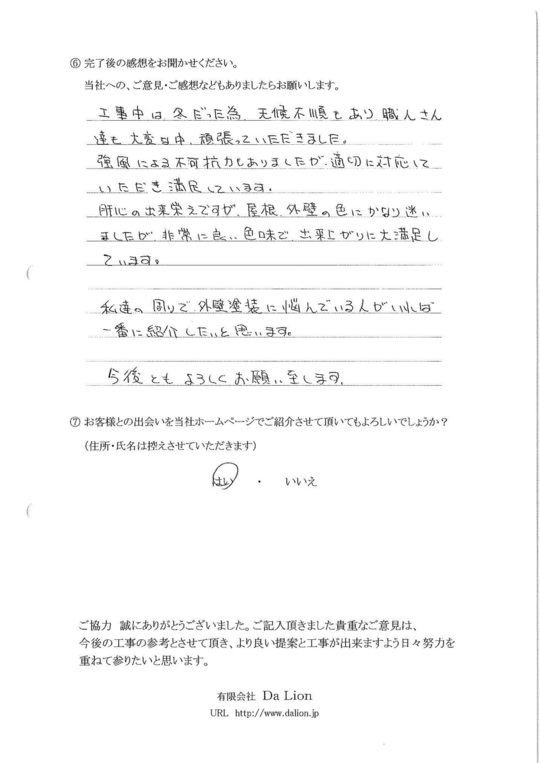 ⑥ 完了後の感想をお聞かせください。
当社への、ご意見・ご感想などもありましたらお願いします。
工事中は、冬だった為、天候不順もあり職人さん
達も大変な中、頑張っていただきました。
強風による不可抗力もありましたが、適切に対応して
いただき満足しています。
肝心の出来栄えですが、屋根、外壁の色にかなり迷い
ましたが、非常に良い色味で、出来上がりに大満足し
ています。
私達の周りで、外壁塗装に悩んでいる人がいれば
一番に紹介したいと思います。
今後ともよろしくお願い致します。
⑦ お客様との出会いを当社ホームページでご紹介させて頂いてもよろしいでしょうか？
（住所・氏名は控えさせていただきます）
はい ・ いいえ
ご協力 誠にありがとうございました。ご記入頂きました貴重なご意見は、
今後の工事の参考とさせて頂き、より良い提案と工事が出来ますよう日々努力を
重ねて参りたいと思います。
有限会社 Da Lion
URL http://www.dalion.jp